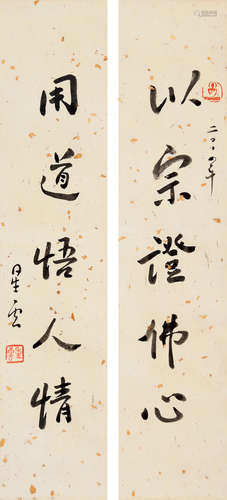 以宗證佛心
二〇〇四年
用道悟人情
星雲